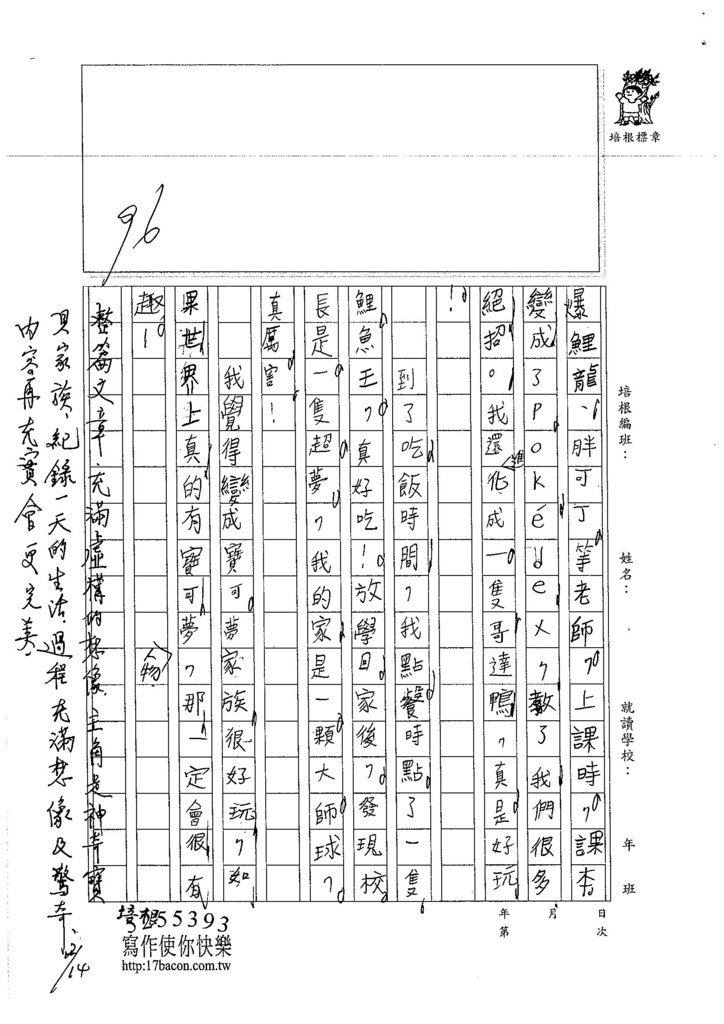 培根標章
培根編班：
姓名：
就讀學校：
年 班
日 次
月
年 第
96
爆鯉龍、胖可丁等老師，上課時，課本
變成了Pokédex，教了我們很多
絕招。我還進化成一隻哥達鴨，真是好玩
！
到了吃飯時間，我點餐時點了一隻
鯉魚王，真好吃！放學回家後，發現校
長是一隻超夢，我的家是一顆大師球，
真厲害！
我覺得變成寶可夢家族很好玩，如
果世界上真的有寶可夢，那一定會很有
趣！
整篇文章，充滿虛構的想像，主角是神奇寶
貝家族，紀錄一天的生活，過程充滿想像及驚奇，
內容再充實會更完美。
12/14
培根
355393
寫作使你快樂
http:17bacon.com.tw